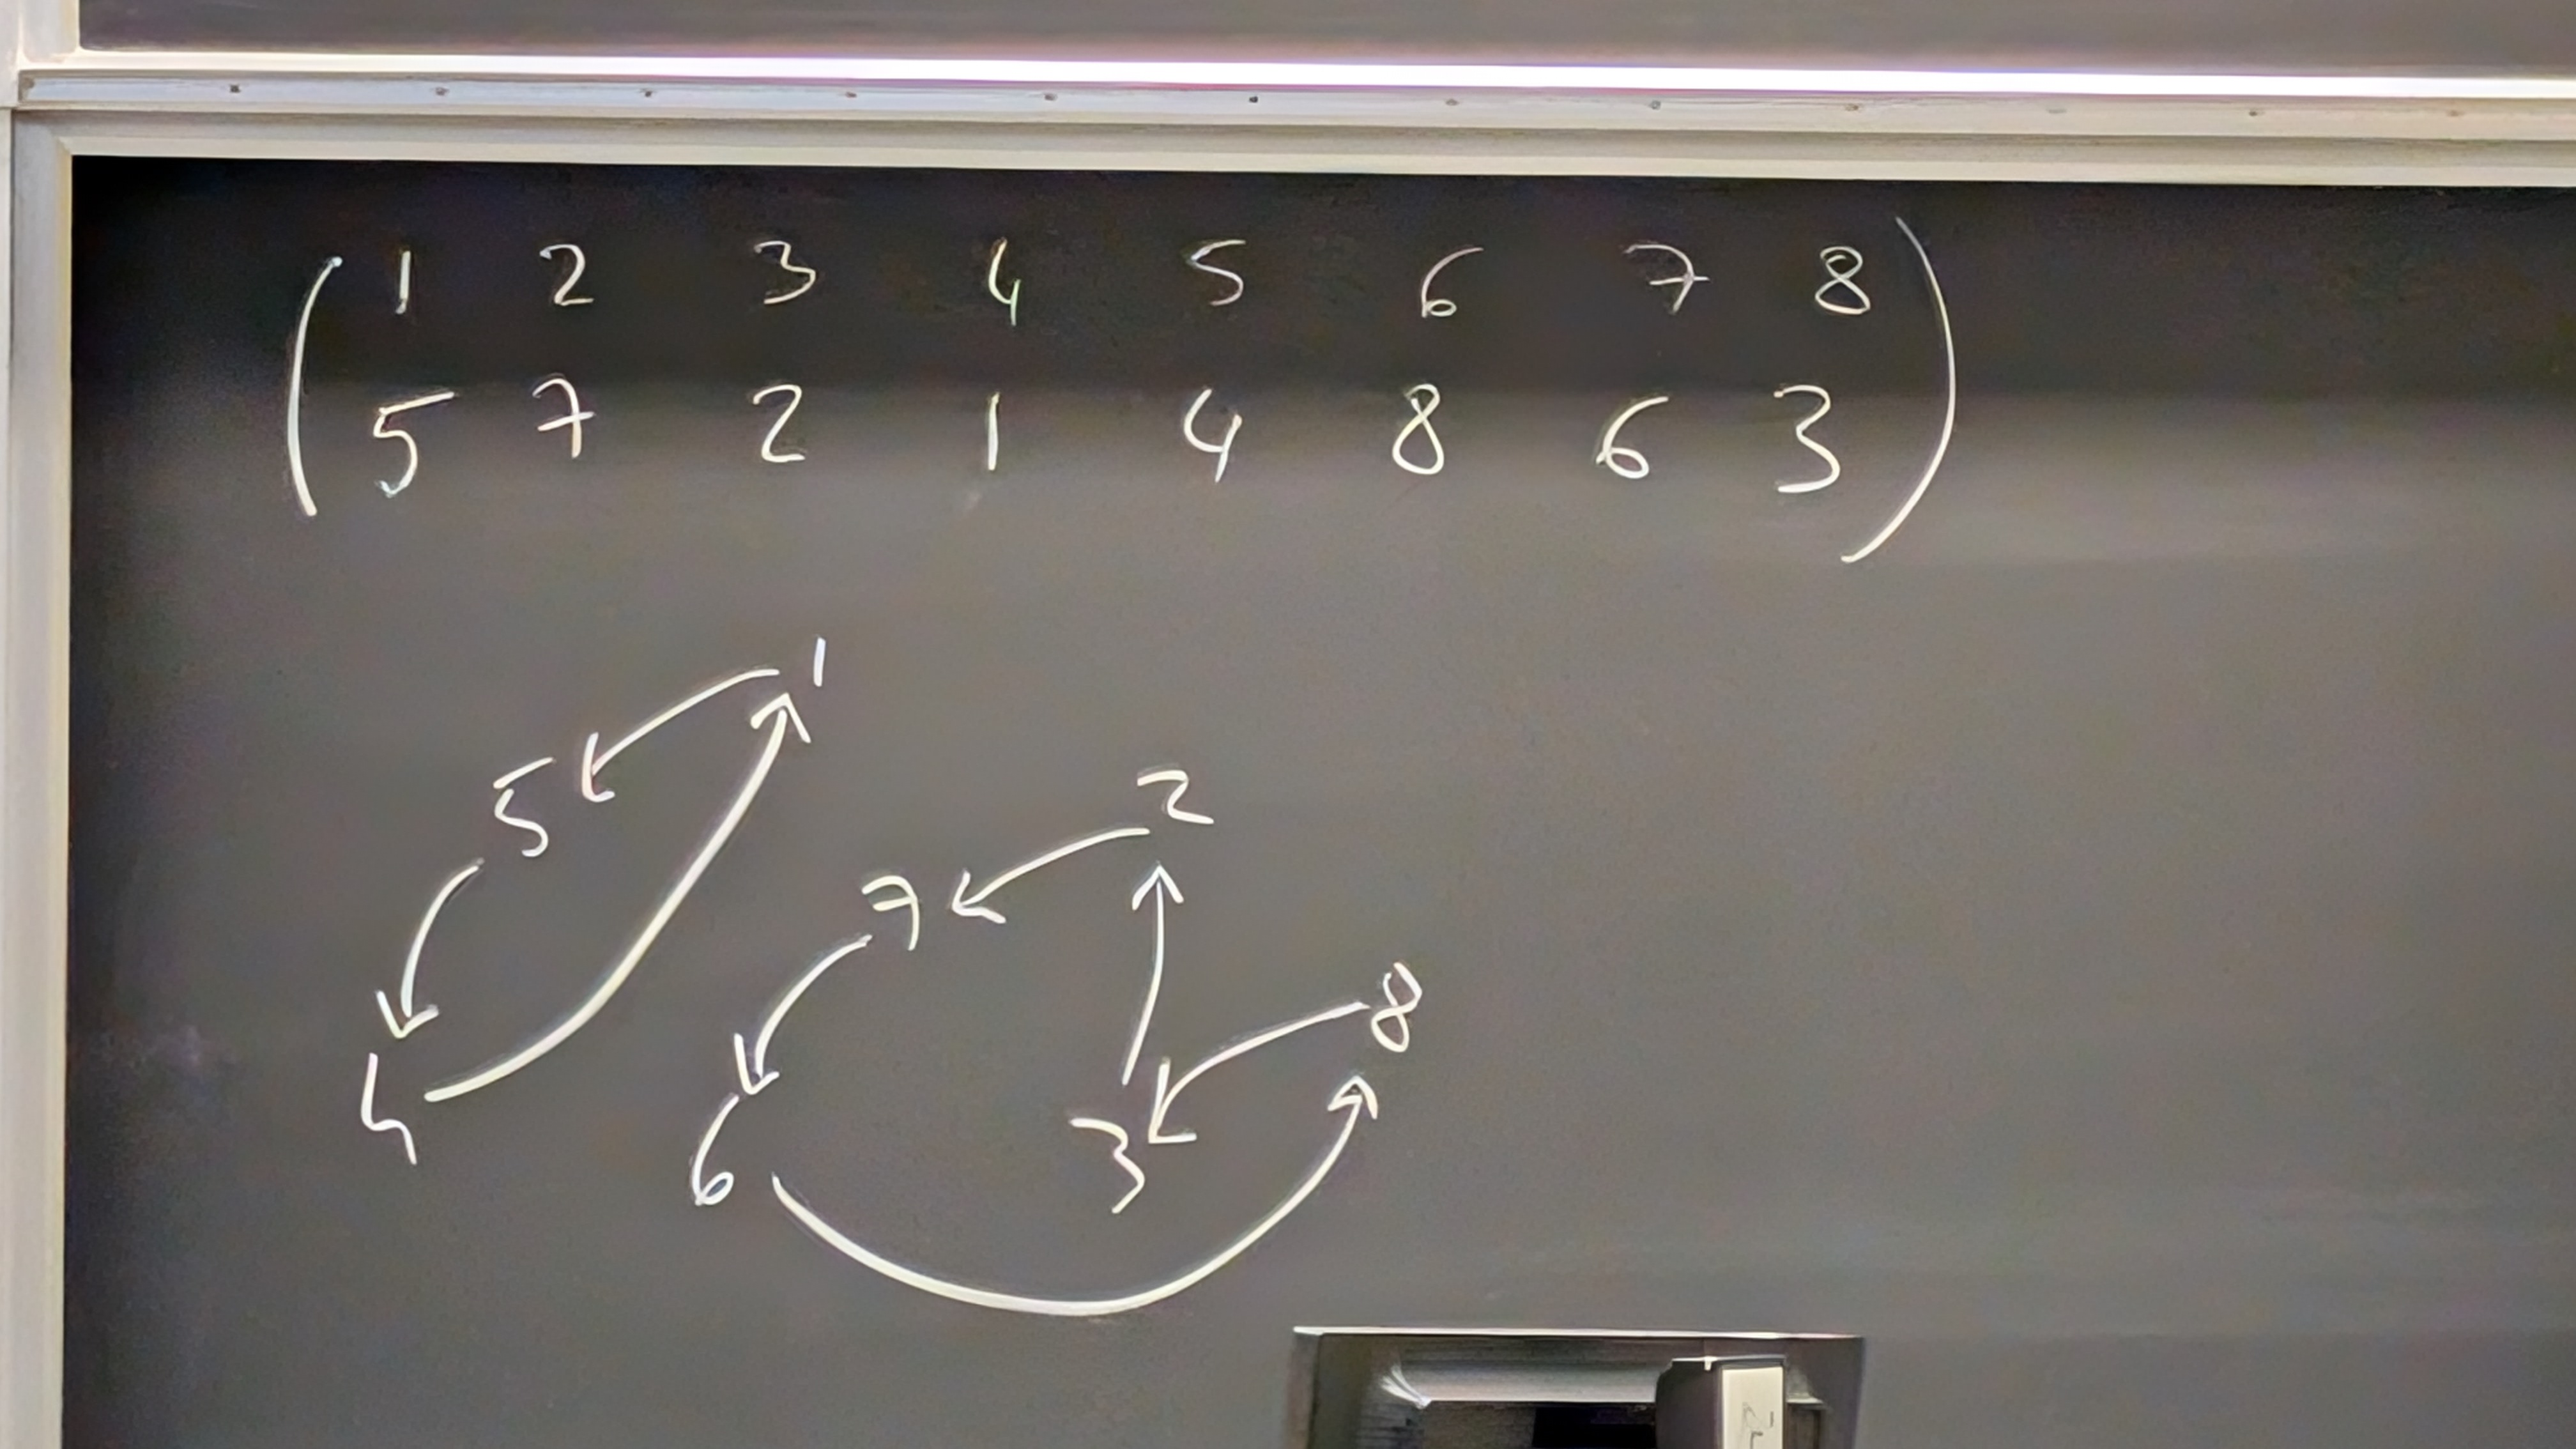 ( 1 2 3 4 5 6 7 8 )
5 7 2 1 4 8 6 3
1
5
2
7
8
4
3
6